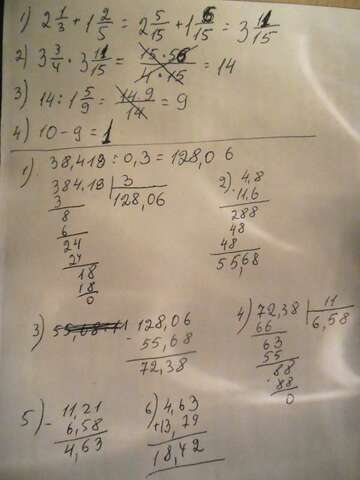 1) 2 1/3 + 1 2/5 = 2 5/15 + 1 6/15 = 3 11/15
2) 3 3/4 · 3 11/15 = 15·56/4·15 = 14
3) 14 : 1 5/9 = 14·9/14 = 9
4) 10 - 9 = 1
1) 38,418 : 0,3 = 128,06
384.18 | 3
128,06
3
8
6
24
24
18
18
0
2) 4,8
11,6
288
48
48
55,68
3) 128,06
- 55,68
72,38
4) 72,38 | 11
66 6,58
63
55
88
88
0
5) - 11,21
6,58
4,63
6) 4,63
+13,79
18,42